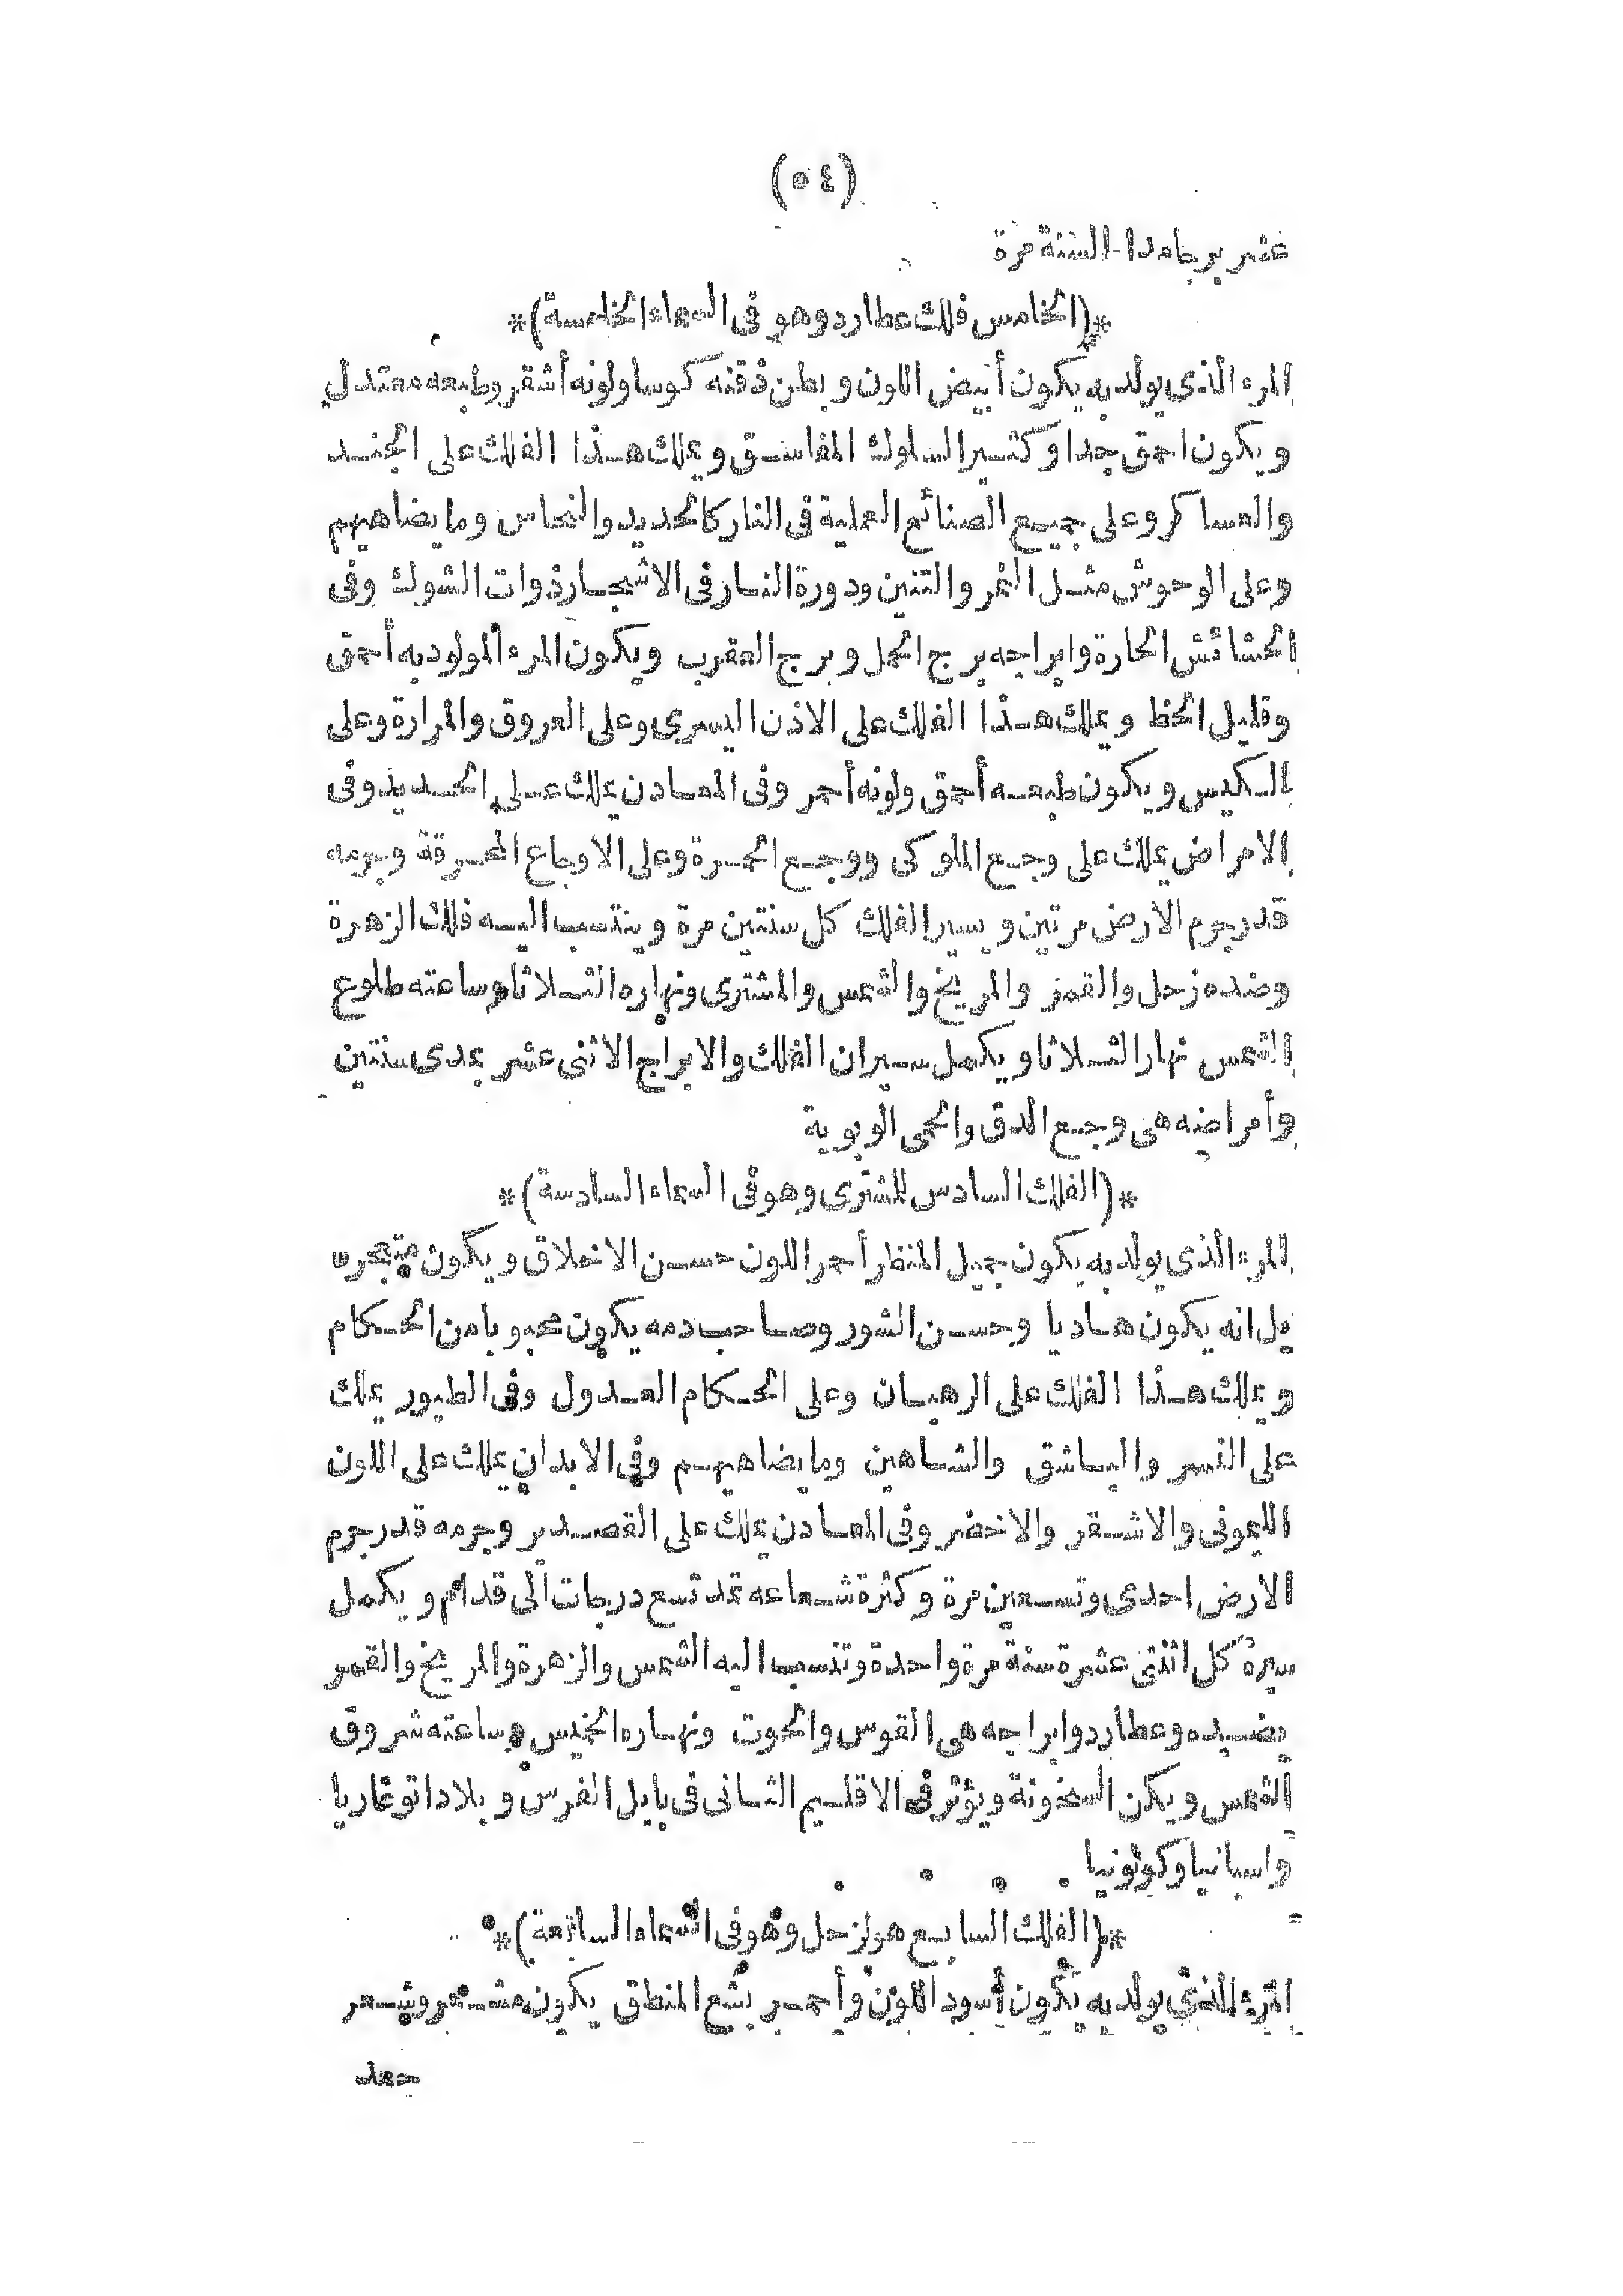 (٥٤)
عشر برجا مدا السنة مرة
*(الخامس فلك عطارد وهو فى السماء الخامسة)*
المرء الذى يولد به يكون أبيض اللون وبطن ذقنه كوسا ولونه أشقر وطبعه معتدل
ويكون احمق جدا وكثير السلوك المفاسق ويملك هذا الفلك على الجند
والعساكر وعلى جميع الصنائع العملية فى النار كالحديد والنحاس وما يضاهيهم
وعلى الوحوش مثل النمر والتنين ودورة النار فى الاشجار ذوات الشوك وفى
الحشائش الحارة وابراجه برج الحمل وبرج العقرب ويكون المرء المولود به أحمق
وقليل الحظ ويملك هذا الفلك على الاذن اليسرى وعلى العروق والمرارة وعلى
الكيس ويكون طبعه أحمق ولونه أحمر وفى المعادن يملك على الحديد وفى
الامراض يملك على وجع الملوكى ووجع الحمرة وعلى الاوجاع المحرقة وجرمه
قدر جرم الارض مرتين ويسير الفلك كل سنتين مرة وينتسب اليه فلك الزهرة
وضده زحل والقمر والمريخ والشمس والمشترى ونهاره الثلاثا وساعته طلوع
الشمس نهار الثلاثا ويكمل سيران الفلك والابراج الاثنى عشر بمدى سنتين
وأمراضه هى وجع الدق والحمى الوبوية
*(الفلك السادس للمشترى وهو فى السماء السادسة)*
المرء الذى يولد به يكون جميل المنظر أحمر اللون حسن الاخلاق ويكون
بل انه يكون هاديا وحسن الشور وصاحب دمه يكون محبوبا من الحكام
ويملك هذا الفلك على الرهبان وعلى الحكام العدول وفى الطيور يملك
على النسر والباشق والشاهين وما يضاهيهم وفى الابدان يملك على اللون
الليمونى والاشقر والاخضر وفى المعادن يملك على القصدير وجرمه قدر جرم
الارض احدى وتسعين مرة وكثرة شعاعه تمد تسع درجات الى قدام ويكمل
سيره كل اثنتى عشرة سنة مرة واحدة وتنسب اليه الشمس والزهرة والمريخ والقمر
يضيده وعطارد وابراجه هى القوس والحوت ونهاره الخميس وساعته شروق
الشمس ويكن السخونة ويؤثر فى الاقليم الثانى فى بابل الفرس وبلاد اتوغاريا
واسبانيا وكولونيا
*(الفلك السابع هو لزحل وهو فى السماء السابعة)*
المرء الذى يولد به يكون أسود اللون وأحمر بشع المنطق يكون مشعر وشعر
جعد